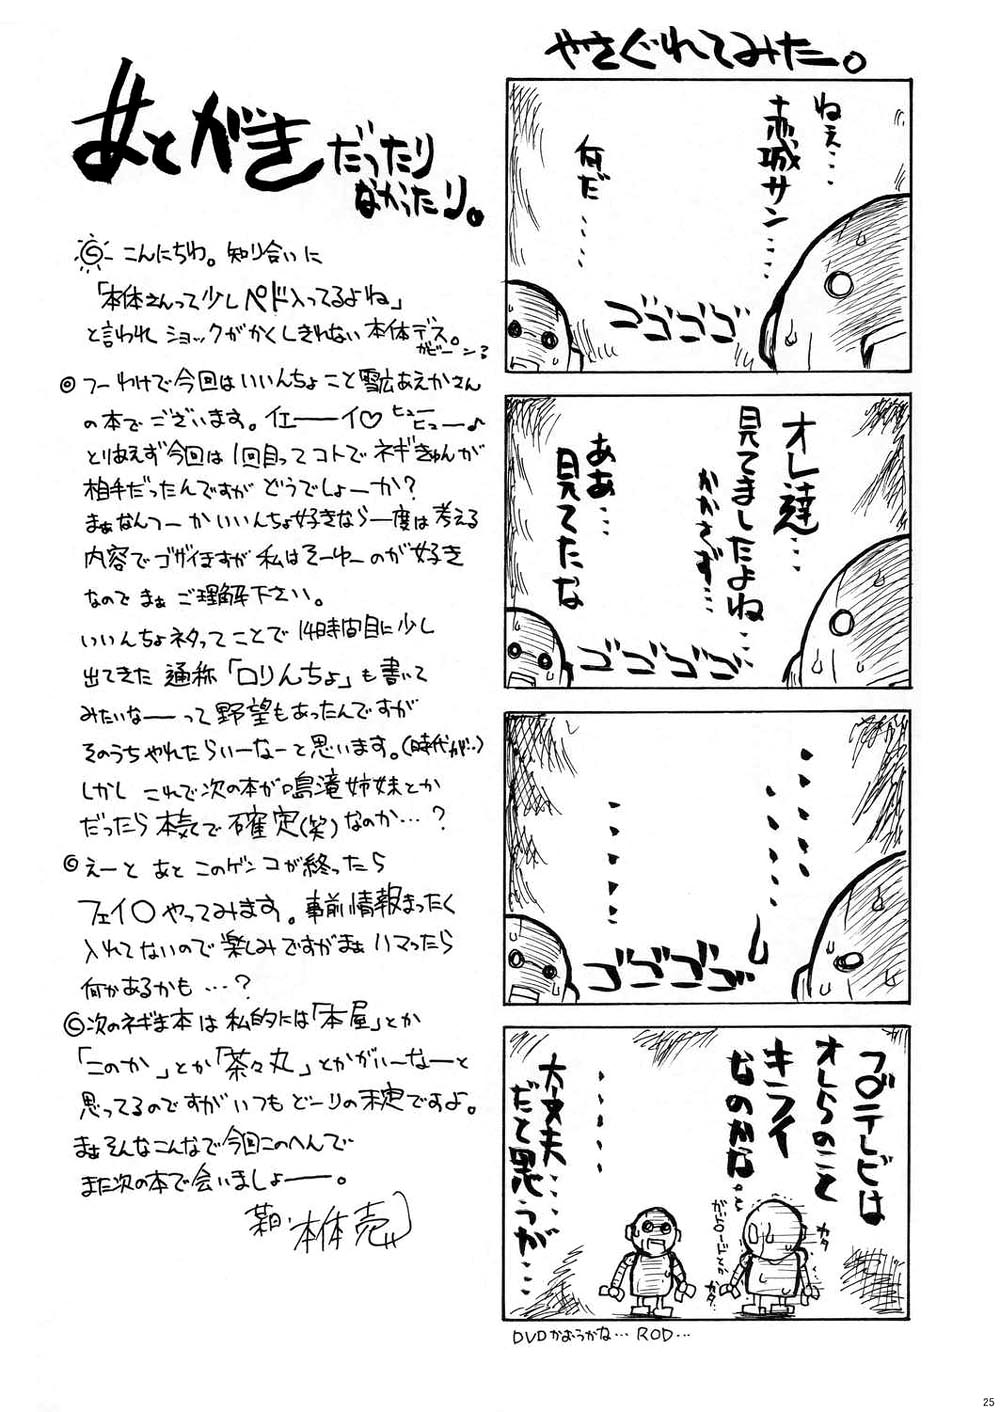 あとがきだったり
なかったり。
こんにちわ。知り合いに
「本体さんって少しペド入ってるよね」
と言われ ショックがかくしきれない 本体デス。
ガビーン
つーわけで今回はいいんちょこと雪広あえかさん
の本でございます。イエーーイ♡ ヒューヒュー♪
とりあえず今回は1回目ってコトで ネギきゅんが
相手だったんですが どうでしょーか?
まぁなんつーか いいんちょ好きなら一度は考える
内容でゴザイますが 私はそーゆーのが好き
なので まぁ ご理解下さい。
いいんちょネタってことで 14時間目に少し
出てきた 通称「ロりんちょ」も書いて
みたいなーーって野望もあったんですが
そのうちやれたらいーなーと思います。(時代が‥)
しかし これで次の本が鳴滝姉妹とか
だったら 本気で 確定(笑)なのか…?
えーと あと このゲンコが終ったら
フェイ○ やってみます。事前情報まったく
入れてないので 楽しみですが まぁ ハマったら
何かあるかも …?
次のネギま本は 私的には「本屋」とか
「このか」とか「茶々丸」とかがいーなーと
思ってるのですが いつもどーりの未定ですよ。
まぁそんなこんなで 今回このへんで
また次の本で会いましょーー。
本体売
やさぐれてみた。
ねえ…
赤城サン……
何だ…
ゴゴゴゴ
オレ達…
見てましたよね…
かかさず…
ああ…
見てたな
ゴゴゴゴ
ゴゴゴゴ
フ○テレビは
オレらのこと
キライ
なのかな。と
ガ○ードとか
カタ
カタ‥
大丈夫…
だと思うが…
DVDかおうかな… ROD…
25